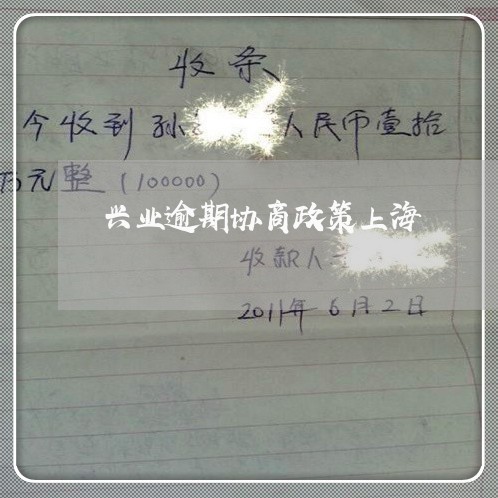 收条
今收到孙 人民币壹拾
万元整(100000)
兴业逾期协商政策上海
收款人
2011年6月2日